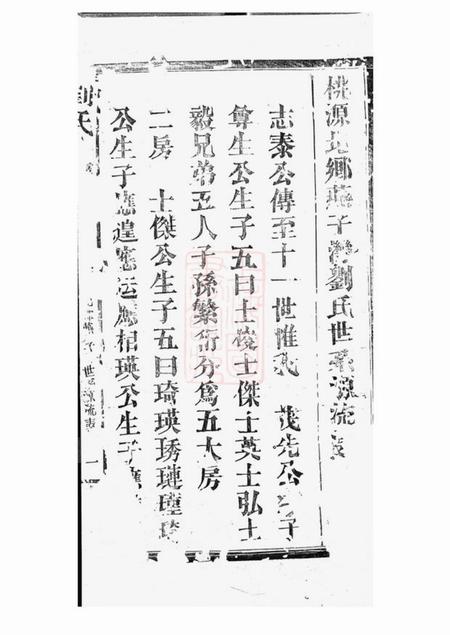 桃源北鄉燕子灣劉氏世系源流表
志泰公傳至十一世惟 茂先公 子
尊生公生子五曰士俊士傑士英士弘士
毅兄弟五人子孫繁衍分為五大房
二房 士傑公生子五曰琦瑛琇璉瑾琦
公生子應遑應运應相瑛公生子應
劉氏
世系源流表 一